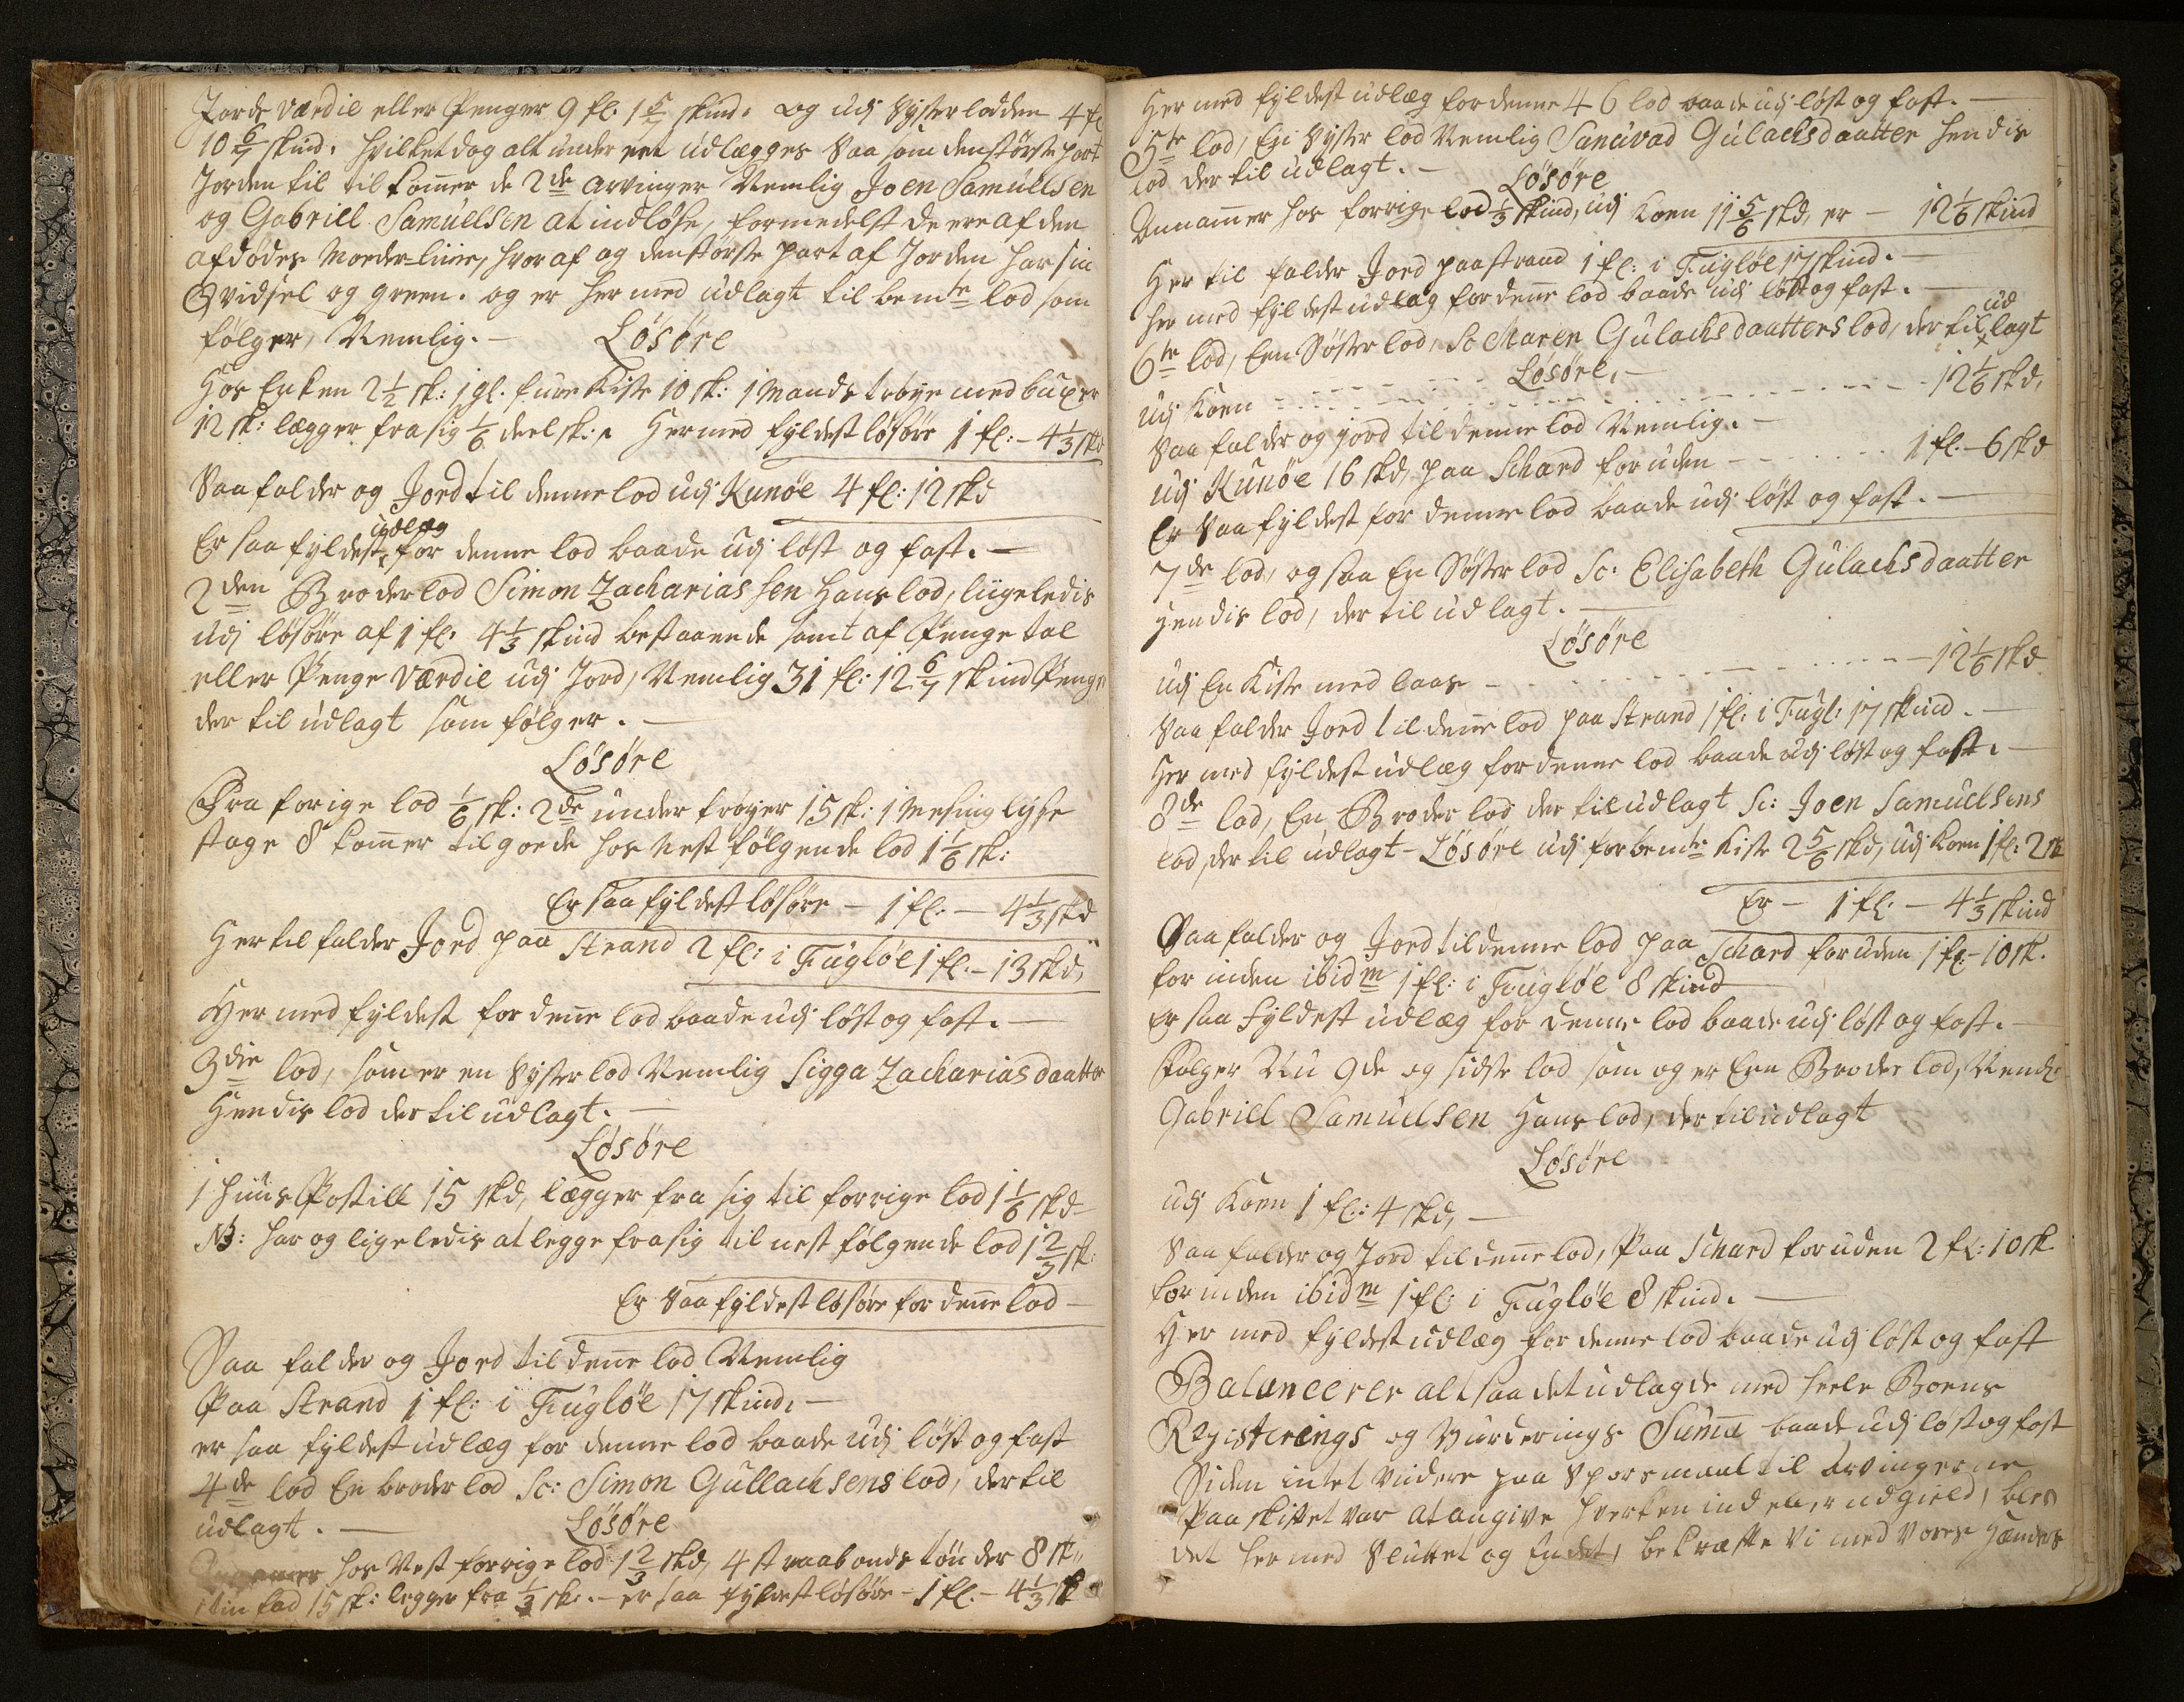 Jords værdie eller Penger 9 fl. 1 5/7 skind. og udj Systerlodden 4 fl
10 6/7 skind. hvilket dog alt under eet udlægges Saa som den største part
Jorden til tilkom̄er de 2de arvinger Nemlig Joen Samúelsen
og Gabriell Samúelsen at indløse, formedelst de ere af den
afdødes Moeder-linie, hvor af og den største part af Jorden har sin
Qvidsel og green. og er her med udlagt til bemte lod som
følger, Nemlig.- Løsøre
Hos Enken 2 1/2 sk: 1 gl. fure Kiste 10 sk: 1 Mands trøye med buxer
12 sk: lægger fra sig 1/6 deel sk: Hermed fyldest løsøre 1 fl: - 4 1/3 skd
Saa falder og Jord til denne lod udj Kunøe 4 fl: 12 skd
udlæg
Er saa fyldest for denne lod baade udj løst og fast. -
2den Broder lod Simon Zachariassen Hans lod, liigeledis
udj løsøre af 1 fl. 4 1/3 skind bestaaende samt af Penge tal
eller Penge værdie udj Jord, Nemlig 31 fl: 12 6/7 skind Penge
der til udlagt som følger. -
Løsøre
Fra forige lod 1/6 sk: 2de under trøyer 15 sk: 1 Mesing lyse
stage 8 kom̄er til goede hos nest følgende lod 1 1/6 sk:
Er saa fyldest løsøre - 1 fl: - 4 1/3 skd
Her til falder Jord paa Strand 2 fl: i Fúgløe 1 fl. - 13 skd,
Her med fyldest for den̄e lod baade udj løst og fast. -
3die lod, som er en Syster lod Nemlig Sigga Zachariasdaatter
Hendis lod der til udlagt. -
Løsøre
1 Húús Postill 15 skd, lægger fra sig til forrige lod 1 1/6 skd
NB: har og ligeledis at legge fra sig til nest følgende lod 1 2/3 sk:
Er Saa fyldest løsøre for den̄e lod -
Saa falder og Jord til den̄e lod Nemlig
Paa Strand 1 fl: i Fúgløe 17 skind. -
er saa fyldest udlæg for denne lod baade udj løst og fast
4de lod En broder lod Sc: Simon Gúllachsens lod, der til
udlagt. - Løsøre
hos Nest forrige lod 1 2/3 skd, 4 st vaabonds tøn̄der 8 sk
1 tin fad 15 sk: legger fra 1/3 sk: - er saa fyldest løsøre - 1 fl. - 4 1/3 sk
Her med fyldest udlæg for denne 4 6 lod baade udj løst og fast. -
5te lod, En Syster lod Nemlig Sanúvad Gúlachsdaatter hendis
lod der til udlagt. - Løsøre
Annam̄er hos forrige lod 1/3 skind, udj Koen 11 5/6 skd, er - 12 1/6 skind
Her til falder Jord paa strand 1 fl: i Fúgløe 17 skind. -
her med fyldest udlæg for den̄e lod baade udj løst og fast. -
ud
6te lod, Een Søster lod, Sc Maren Gúlachsdaatters lod, der til lagt
Løsøre, -
udj Koen - - - - - - - - - 12 1/6 skd,
Saa falder og jord til denne lod Nemlig. -
udj Kunøe 16 skd, paa Schard foruden - - - - - 1 fl. - 6 skd
Er Saa fyldest for denne lod baade udj løst og fast. -
7de lod, og saa En Søster lod Sc: Elisabeth Gúlachsdaatter
Hendis lod, der til udlagt. -
Løsøre
udj En Kiste med laas - - - - - - - - 12 1/6 skd
Saa falder Jord til den̄e lod paa Strand 1 fl: i Fúgl: 17 skind. -
Her med fyldest udlæg for denne lod baade udj løst og fast. -
8de lod, En Broder lod der til udlagt Sc: Joen Samúelsens
lod, der til udlagt - Løsøre udj forbemte Kiste 2 5/6 skd, udj Koen 1 fl: 2 sk
Er - 1 fl: - 4 1/3 skind
Saa falder og Jord til denne lod paa Schard foruden 1 fl: - 10 sk.
for inden ibidm 1 fl: i Fúgløe 8 skind
Er saa Fyldest udlæg for denne lod baade udj løst og fast. -
Følger Nu 9de og sidste lod som og er Een Broder lod, Neml:
Gabriell Samúelsen Hans lod, der til udlagt
Løsøre
udj Koen 1 fl: 4 skd, -
Saa falder og Jord til den̄e lod, Paa Schard foruden 2 fl: 10 sk
for inden ibidm 1 fl: i Fúgløe 8 skind. -
Her med fyldest udlæg for denne lod baade udj løst og fast
Balanceerer alt saa det udlagde med heele Boens
Registerings og Vurderings Sum̄a baade udj løst og fast
Siden intet viidere paa Spørsmaal til Arvingerne
Paa skiftet var at angive hverken ind eller udgield, blev
det her med Sluttet og Endet, bekræfte Vi med Vores Hænders